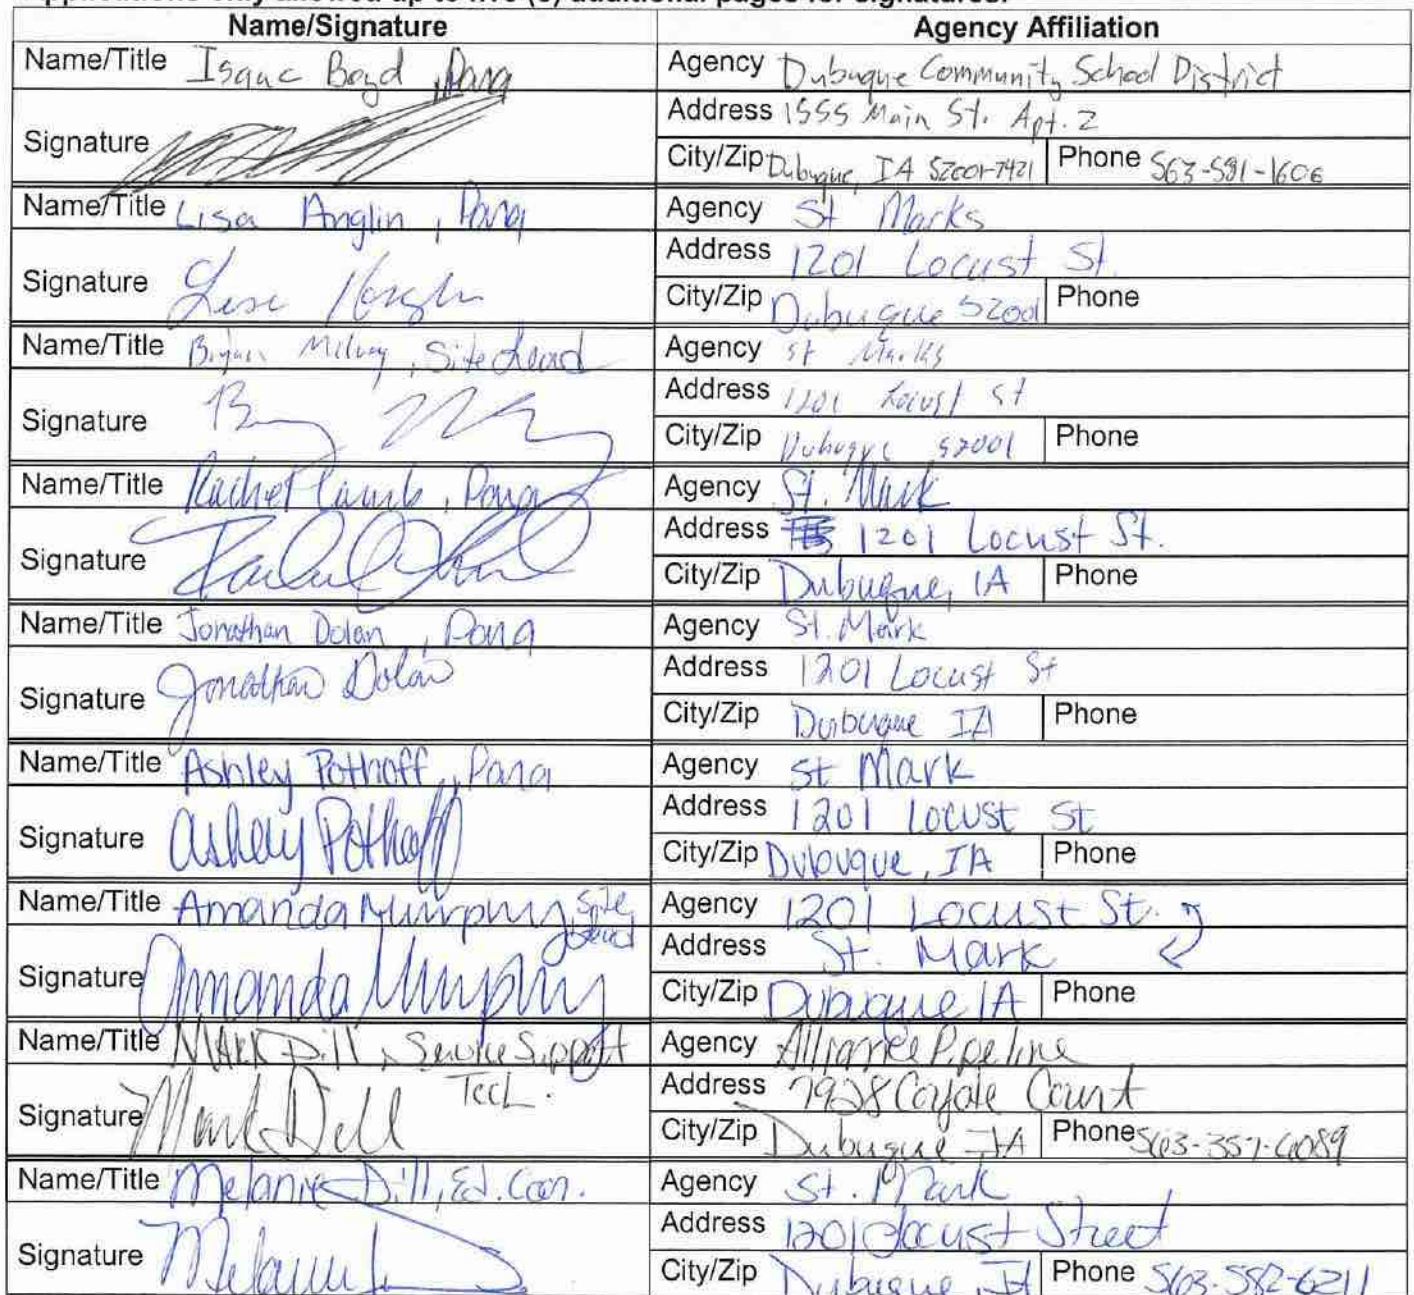 Applications only allowed up to five (5) additional pages for signatures.
Name/Signature Agency Affiliation
Name/Title Isaac Boyd, Para Agency Dubuque Community School District
Signature Address 1555 Main St. Apt. 2
City/Zip Dubuque, IA 52001-7421 Phone 563-581-1606
Name/Title Lisa Anglin, Para Agency St Marks
Signature Address 1201 Locust St.
City/Zip Dubuque 52001 Phone
Name/Title Bryan, Site Lead Agency St Marks
Signature Address 1201 Locust St
City/Zip Dubuque 52001 Phone
Name/Title Rachel Lamb, Para Agency St. Mark
Signature Address 1201 Locust St.
City/Zip Dubuque, IA Phone
Name/Title Jonathan Dolan, Para Agency St. Mark
Signature Jonathan Dolan Address 1201 Locust St
City/Zip Dubuque IA Phone
Name/Title Ashley Pothoff, Para Agency St Mark
Signature Ashley Pothoff Address 1201 Locust St
City/Zip Dubuque, IA Phone
Name/Title Amanda Murphy Site Lead Agency 1201 Locust St.
Signature Amanda Murphy Address St. Mark
City/Zip Dubuque IA Phone
Name/Title Mark Dill, Service Support Tech. Agency Alliance Pipeline
Signature Mark Dill Address 7928 Coyote Court
City/Zip Dubuque IA Phone 563-357-6089
Name/Title Melanie Dill, Ed. Coor. Agency St. Mark
Signature Address 1201 Locust Street
City/Zip Dubuque, IA Phone 563-582-6211